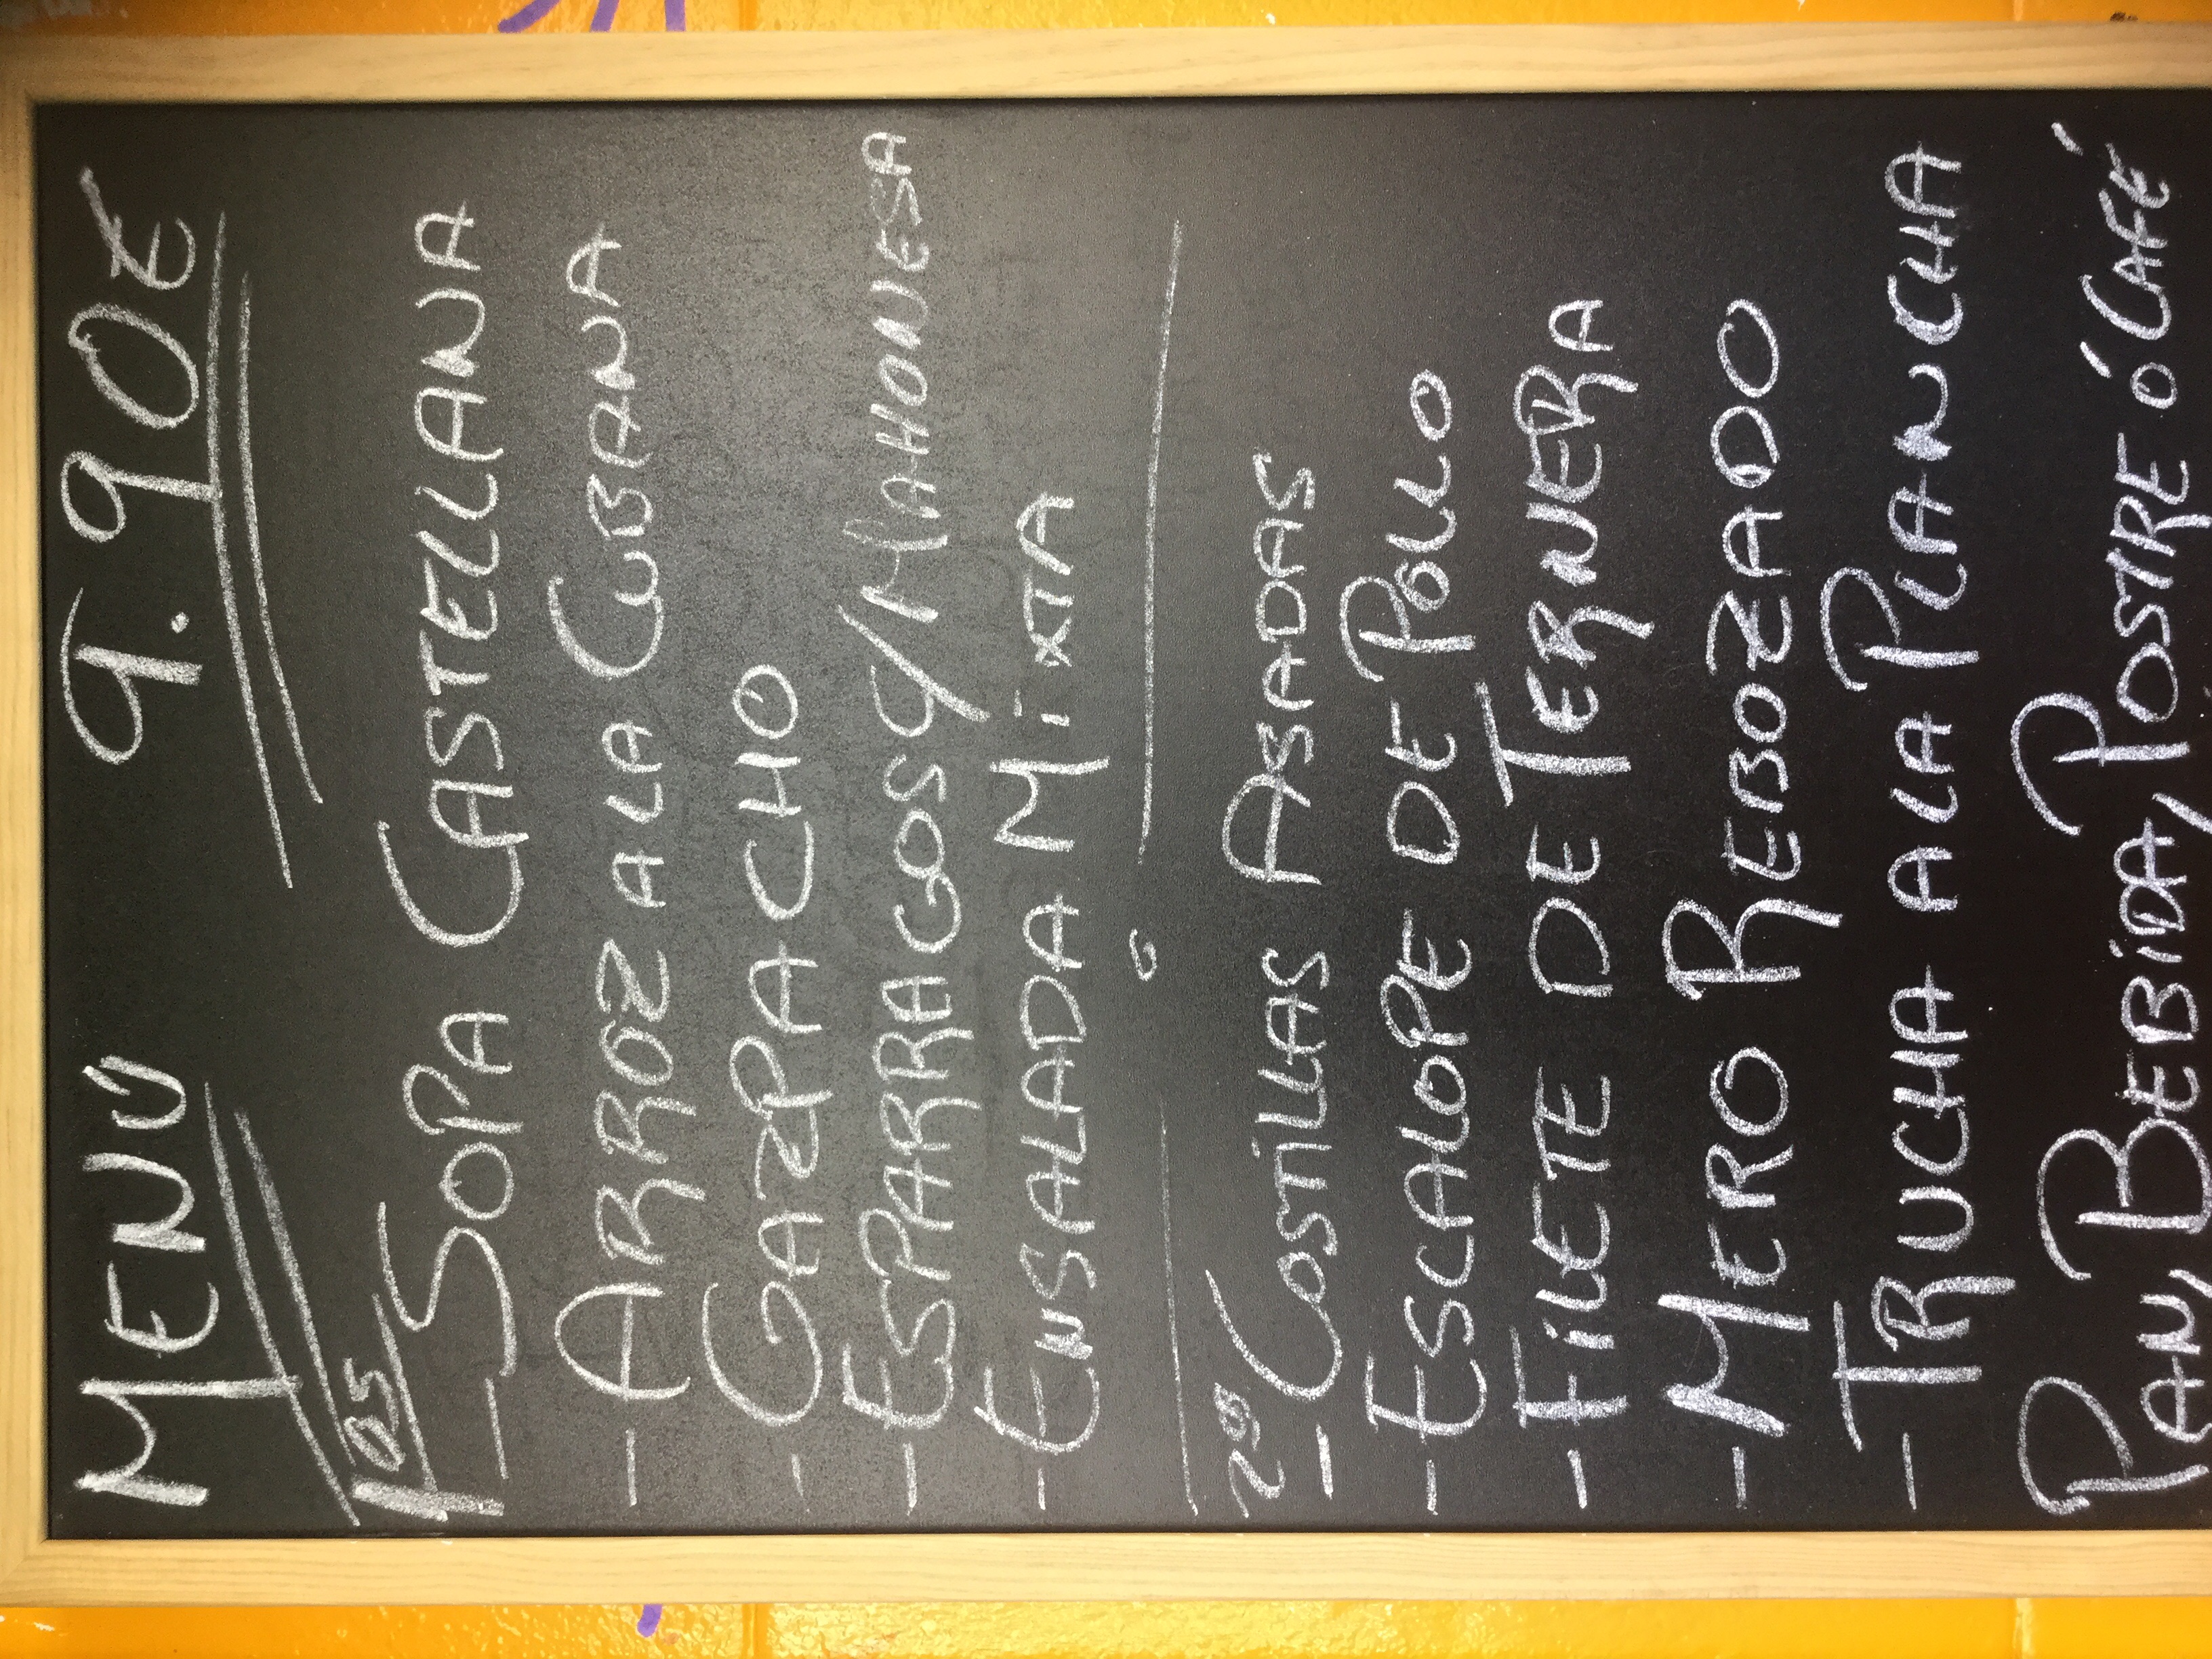 MENÚ 9.90€
1os
- SOPA CASTELLANA
- ARROZ A LA CUBANA
- GAZPACHO
- ESPARRAGOS C/MAHONESA
- ENSALADA MiXTA
2os
- COSTiLLAS ASADAS
- ESCALOPE DE POLLO
- FiLETE DE TERNERA
- MERO REBOZADO
- TRUCHA A LA PLANCHA
PAN, BEBiDA, POSTRE ó CAFÉ